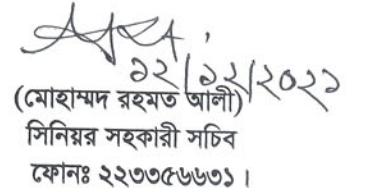 ১২/১২/২০২১
(মোহাম্মদ রহমত আলী)
সিনিয়র সহকারী সচিব
ফোনঃ ২২৩৩৫৬৬৩১ ।